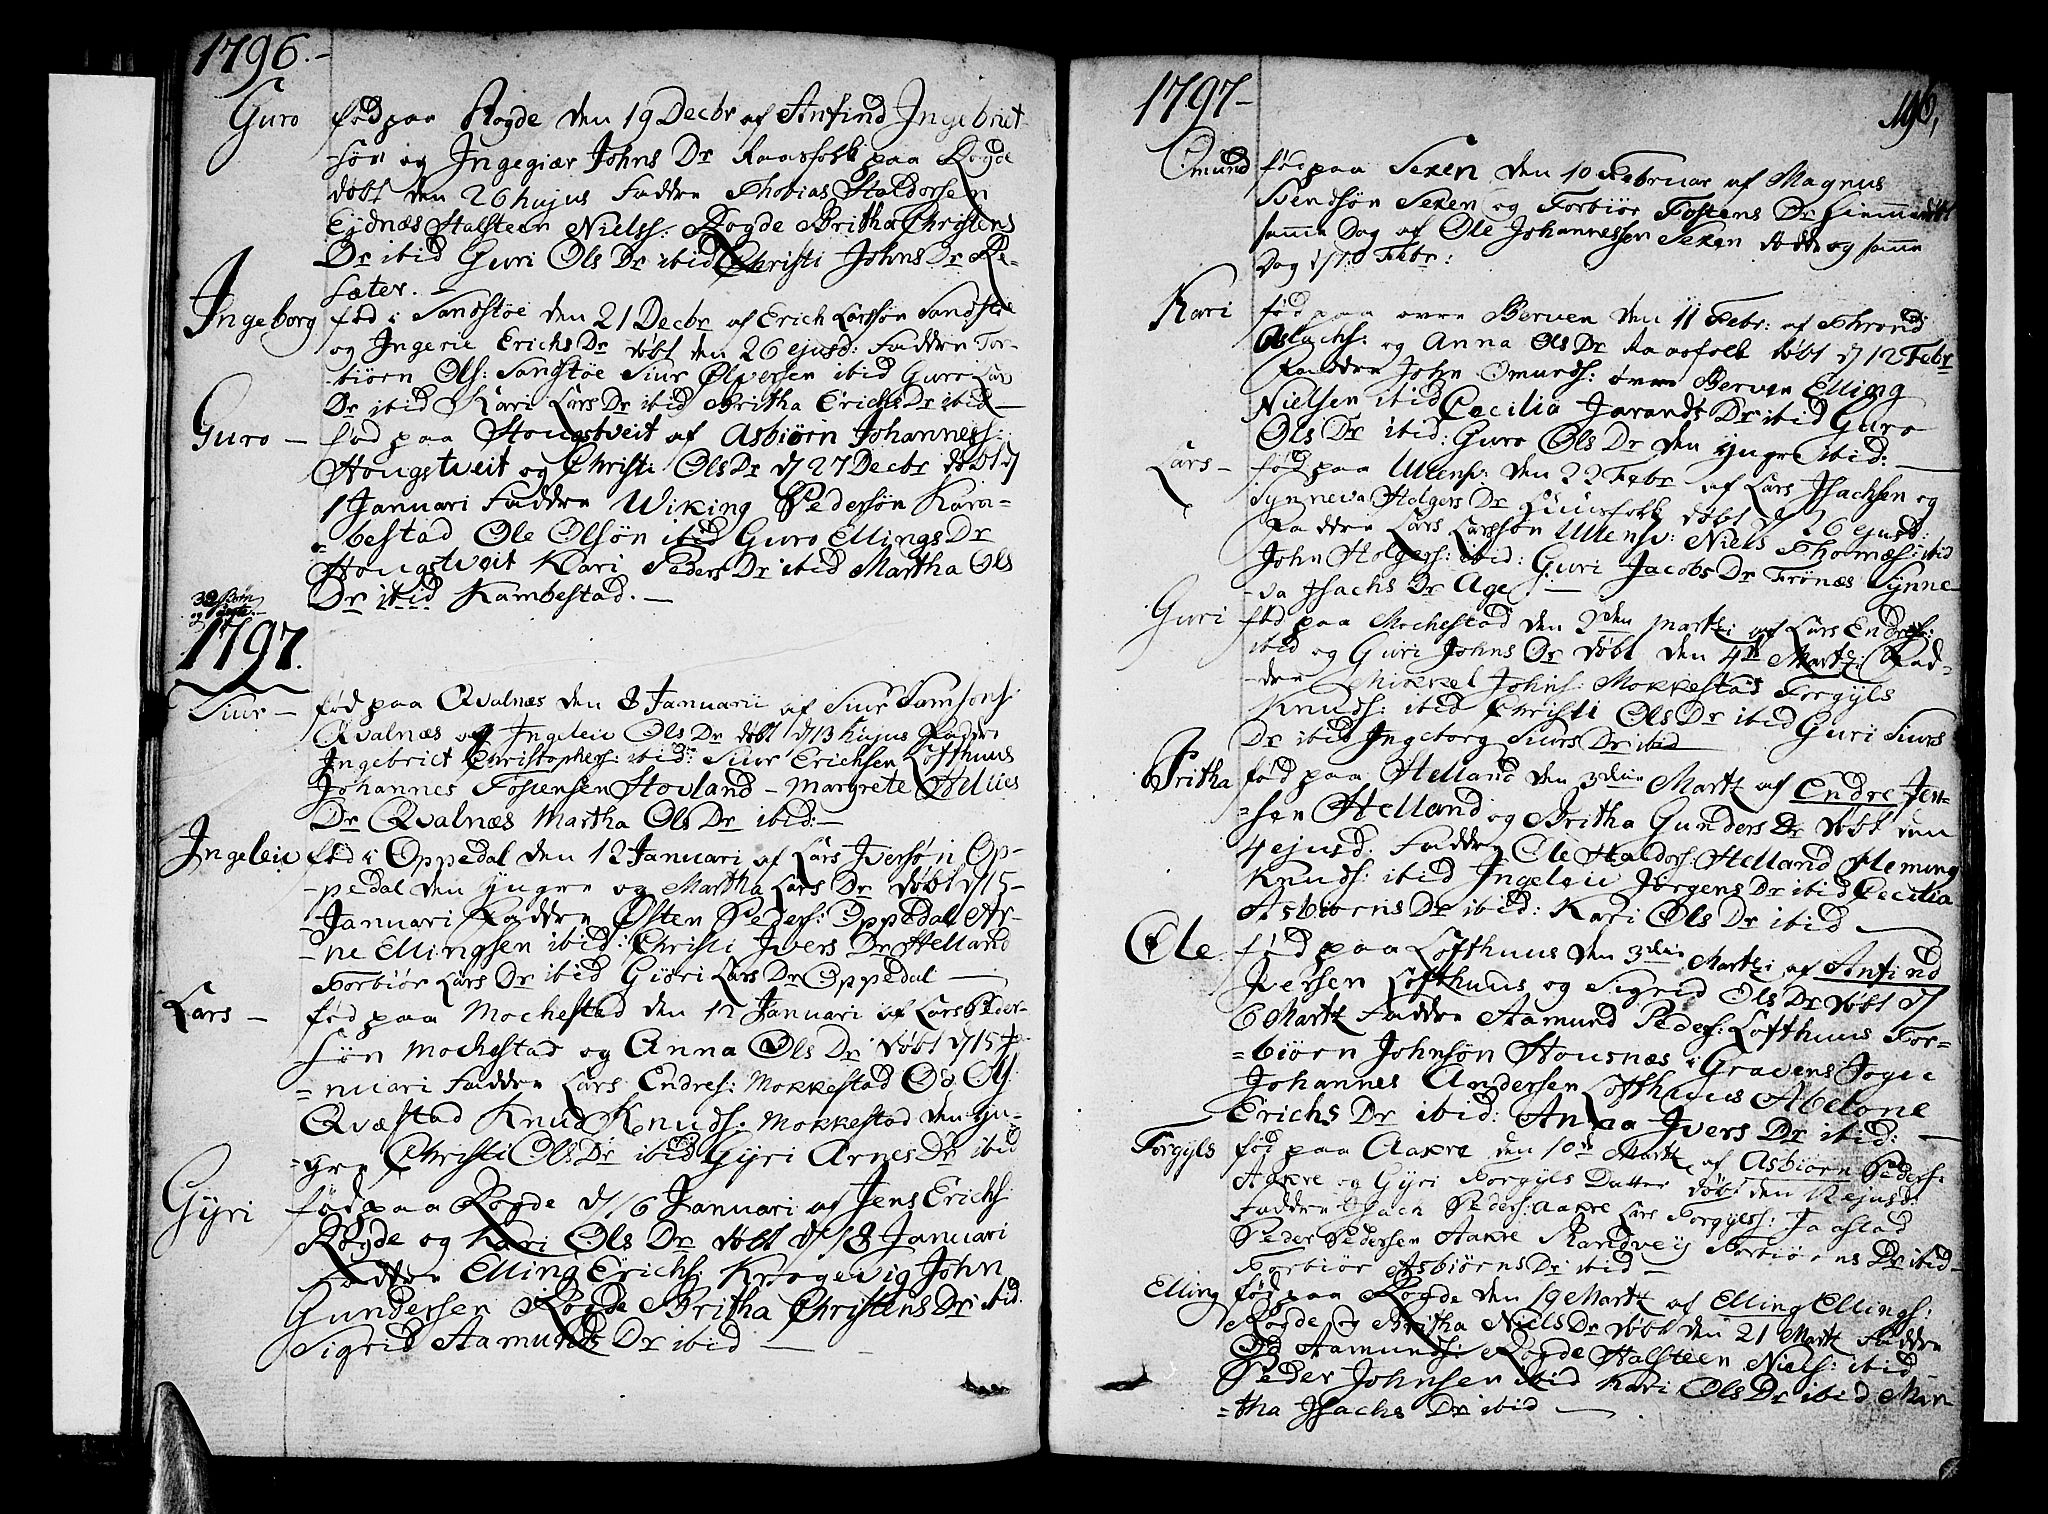 1796.-
Guro fød paa Rogde den 19 Decbr af Anfind Ingebrict-
-søn og Ingegiær Johns Dr Raasfolk paa Rogde
døbt den 26 hujus Faddre Thobias Haldorsen
Eydnæs Halsteen Nielss: Rogde Britha Christens
Dr ibid Guri Ols Dr ibid Christi Johns Dr Re-
sæter.-
Ingeborg fød i Sandstøe den 21 Decbr af Erich Larssøn Sandstøe
og Ingerii Erichs Dr døbt den 26 ejusd: Faddre Tor-
biørn Ols: Sandstøe Siur Olversen ibid Guro Lars
Dr ibid Kari Lars Dr ibid Britha Erichs Dr ibid-
Guro - fød paa Hougstveit af Asbiørn Johanness:
Hougstveit og Christi Ols Dr d 27 Decbr døbt d
1 Januari Faddre Wiking Pedersøn Kam-
bestad Ole Olsøn ibid Guro Ellings Dr
Hougstveit Kari Peders Dr ibid Martha Ols
Dr ibid Kambestad.-
1797.
Siur - fød paa Qvalnæs den 8 Januarii af Siur Samsons:
Qvalnæs og Ingeleiv Ols Dr døbt d 13 hujus Faddre
Ingebrict Christophers: ibid: Siur Erichsen Lofthuus
Johannes Tostensen Hovland - Margrete Helies
Dr Qvalnæs Martha Ols Dr ibid:-
Ingeleiv fød i Oppedal den 12 Januari af Lars Iversøn Op-
-pedal den yngre og Martha Lars Dr døbt d 15-
Januari Faddre Østen Peders: Oppedal Ar-
-ne Ellingsen ibid: Christi Ivers Dr Helland
Torbiør Lars Dr ibid Giøri Lars Dr Oppedal-
Lars - fød paa Mochestad den 12 Januari af Lars Peder-
søn Mochestad og Anna Ols Dr døbt d 15 Ja-
=nuari Faddre Lars Endres: Mokkestad Od Ols:
Qvæstad Knud Knuds: Mokkestad den yn-
-gre Christi Ols Dr ibid Gyri Arnes Dr ibid
Gyri fød paa Rogde d 16 Januari af Jens Erichs:
Rogde og Kari Ols Dr døbt d 18 Januari
Faddre Elling Erichs: Kragevig John
Gundersen Rogde Britha Christens Dr ibid.
Sigrid Aamunds Dr ibid -
1797- 196,
Omund fød paa Sexen den 10 Februar af Magnus
Bendsøn Sexen og Torbiør Tostens Dr hiemmedøbt
samme Dag af Ole Johannessen Sexen død og samme
Dag d 10 Febr:
Kari fød paa øvre Berven den 11 Febr: af Thrond
Aslachs: og Anna Ols Dr Raasfolk døbt d 12 Febr
Faddre John Omunds: øvre Berven Elling
Nielsen ibid Cecilia Jarands Dr ibid Guro
Ols Dr ibid: Guro Ols Dr den yngre ibid:-
Lars - fød paa Ullensv: den 22 Febr af Lars Isachsen og
Synneva Holgers Dr Huusfolk døbt d 26 ejusd:
Faddre Lars Larssøn Ullensv: Niels Thomæs: ibid
John Holgers: ibid: Guri Jacobs Dr Frønæs Synne-
-va Isachs Dr Age -
Guri fød paa Mochestad den 2den Martzi af Lars Endres:
ibid og Guri Johns Dr døbt den 4de Martzi Fad-
-dre Mikkel Johns: Mokkestad Torgyls
Knuds: ibid Christi Ols Dr ibid Guri Siurs
Dr ibid Ingeborg Siurs Dr ibid
Britha fød paa Helland den 3die Martz af Endre Jen-
=sen Helland og Britha Gunders Dr døbt den
4 ejusd: Faddre Ole Haldors: Helland Fleming
Knuds: ibid Ingeleiv Jørgens Dr ibid Cecilia
Asbiørns Dr ibid: Kari Ols Dr ibid -
Ole fød paa Lofthuus den 3die Martzi af Anfind
Iversen Lofthuus og Sigrid Ols Dr døbt d
6 Martz Faddre Aamund Peders: Lofthuus Tor-
=biørn Johnsøn Housnæs i Gravens Sogn
Johannes Andersen Lofthuus Abelone
Erichs Dr ibid: Anna Ivers Dr ibid: -
Torgyls fød paa Aakre den 10de Martz af Asbiørn Peders:
Aakre og Gyri Torgyls Datter døbt den 12 ejusd:
Faddre Isach Peders: Aakre Lars Torgylss: Jaastad
Peder Pedersen Aakre Randveij Torbiørns Dr ibid-
Torbiør Asbiørns Dr ibid -
Elling fød paa Rogde den 19 Martz af Elling Ellings:
Rogde og Britha Niels Dr døbt den 21 Martz Faddre
Od Aamunds: Rogde Halsteen Niels: ibid
Peder Johnsen ibid Kari Ols Dr ibid Mar
=tha Isachs Dr ibid -